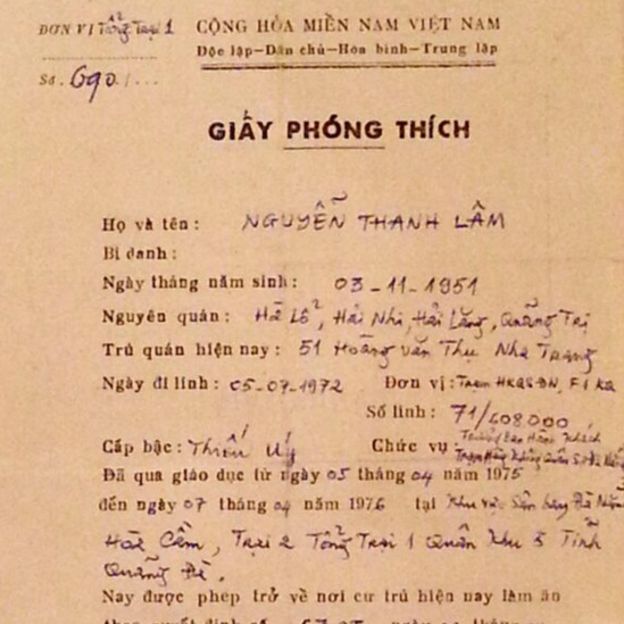 ĐƠN VỊ Tổng Trại 1
CỘNG HÒA MIỀN NAM VIỆT NAM
Độc lập—Dân chủ—Hòa bình—Trung lập
Số. 690/...
GIẤY PHÓNG THÍCH
Họ và tên: NGUYỄN THANH LÂM
Bí danh:
Ngày tháng năm sinh: 03-11-1951
Nguyên quán: Hà Lỗ, Hải Nhi, Hải Lăng, Quảng Trị
Trú quán hiện nay: 51 Hoàng Văn Thụ Nha Trang
Ngày đi lính: 05-07-1972 Đơn vị: Trạm HKQSĐN, F1 KQ
Số lính: 71/408.000
Cấp bậc: Thiếu Úy Chức vụ: Trưởng Ban Hành Khách
Trạm Hàng Không Quân Sự Đà Nẵng
Đã qua giáo dục từ ngày 05 tháng 04 năm 1975
đến ngày 07 tháng 04 năm 1976 tại Khu vực Sân bay Đà Nẵng
Hòa Cầm, Trại 2 Tổng Trại 1 Quân Khu 5 Tỉnh
Quảng Đà.
Nay được phép trở về nơi cư trú hiện nay làm ăn
theo quyết định số